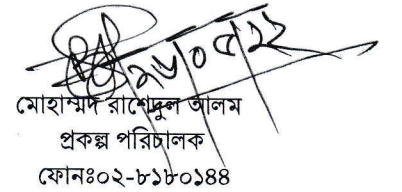 ২৬/০৫/২২
মোহাম্মদ রাশেদুল আলম
প্রকল্প পরিচালক
ফোনঃ০২-৮১৮০১৪৪